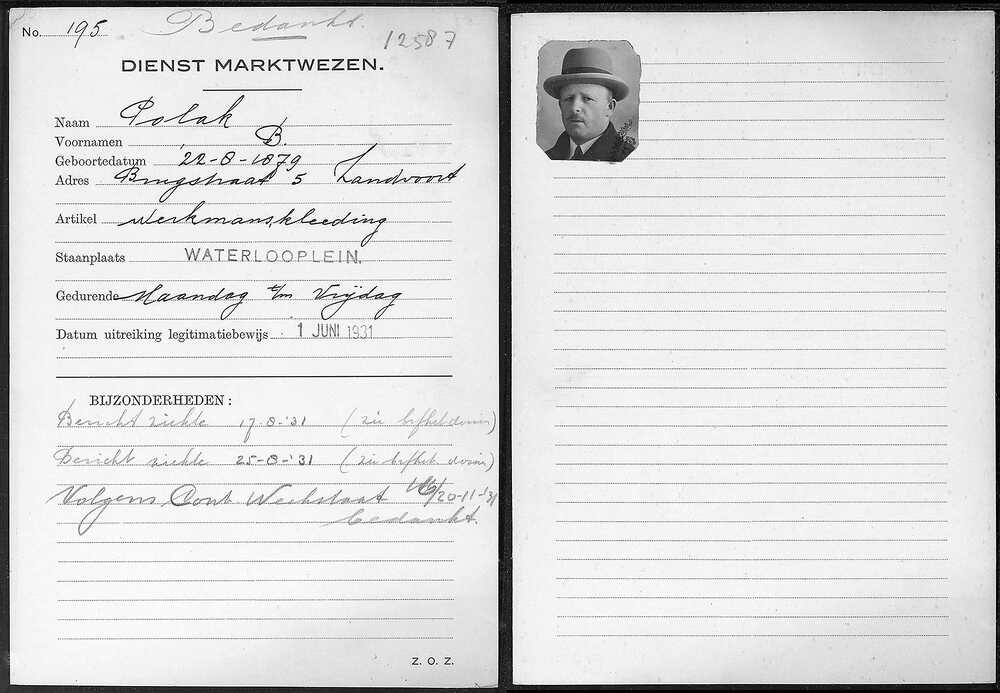 No. 195 Bedankt.
12587
DIENST MARKTWEZEN.
Naam Polak
Voornamen B.
Geboortedatum 22-8-1879
Adres Brugstraat 5 Zandvoort
Artikel Werkmanskleeding
Staanplaats WATERLOOPLEIN.
Gedurende Maandag t/m Vrijdag
Datum uitreiking legitimatiebewijs 1 JUNI 1931
BIJZONDERHEDEN:
Bericht ziekte 17-8-'31 (zie
Bericht ziekte 25-8-'31 (zie
Volgens Cont. Weekstaat 20-11-'31
bedankt.
Z. O. Z.